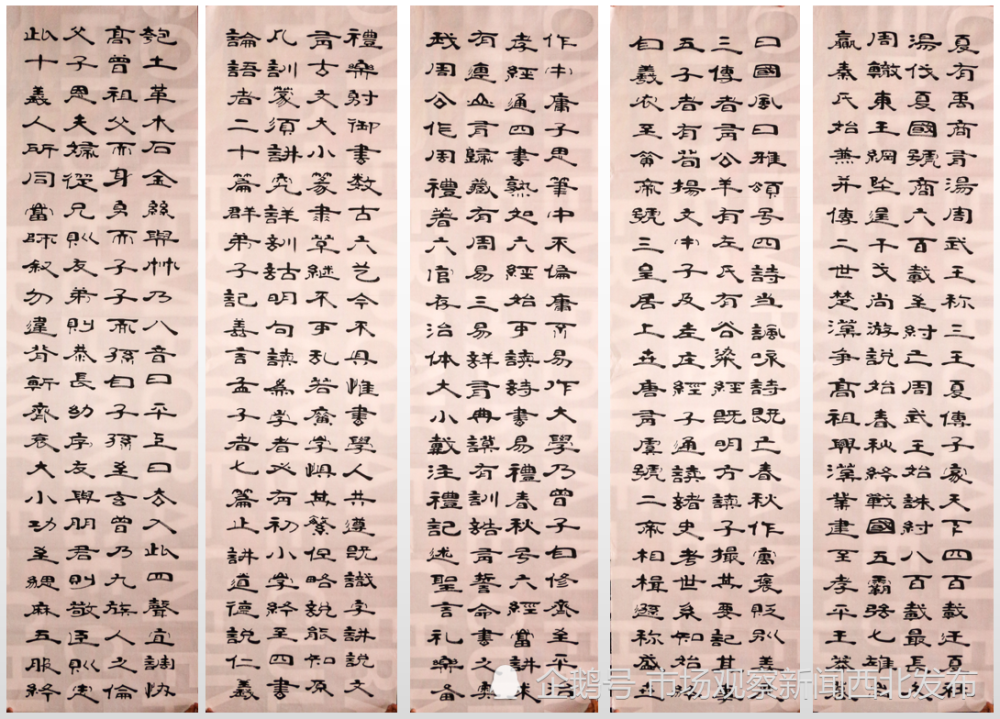 匏土革木石金絲與竹乃八音曰平上曰去入此四聲宜調協
高曾祖父而身身而子子而孫自子孫至玄曾乃九族人之倫
父子恩夫婦從兄則友弟則恭長幼序友與朋君則敬臣則忠
此十義人所同當師叙勿違背斬齊衰大小功至緦麻五服終
禮樂射御書数古六艺今不具惟書學人共遵既識字講說文
有古文大小篆隶草継不可乱若廣学惧其繁但略說能知原
凡訓蒙須講究詳訓詁明句讀為学者必有初小学終至四書
論語者二十篇群弟子記善言孟子者七篇止講道德說仁義
作中庸子思筆中不偏庸不易作大學乃曾子自修齊至平治
孝經通四書熟如六經始可讀詩書易禮春秋号六經當講求
有連山有歸藏有周易三易詳有典謨有訓誥有誓命書之奥
我周公作周禮著六官存治体大小戴注禮記述聖言礼樂备
曰國風曰雅頌号四詩当諷咏詩既亡春秋作寓褒貶别善惡
三傳者有公羊有左氏有谷梁經既明方讀子撮其要記其事
五子者有荀揚文中子及老庄經子通讀諸史考世系知始終
自羲农至黄帝號三皇居上世唐有虞號二帝相揖遜称盛世
夏有禹商有湯周武王称三王夏傳子家天下四百載迁夏社
湯伐夏國號商六百載至紂亡周武王始誅紂八百載最長久
周轍東王綱墜逞干戈尚游說始春秋終戰國五霸强七雄出
嬴秦氏始兼并傳二世楚漢争高祖興漢業建至孝平王莽篡
企鹅号 市场观察新闻西北发布